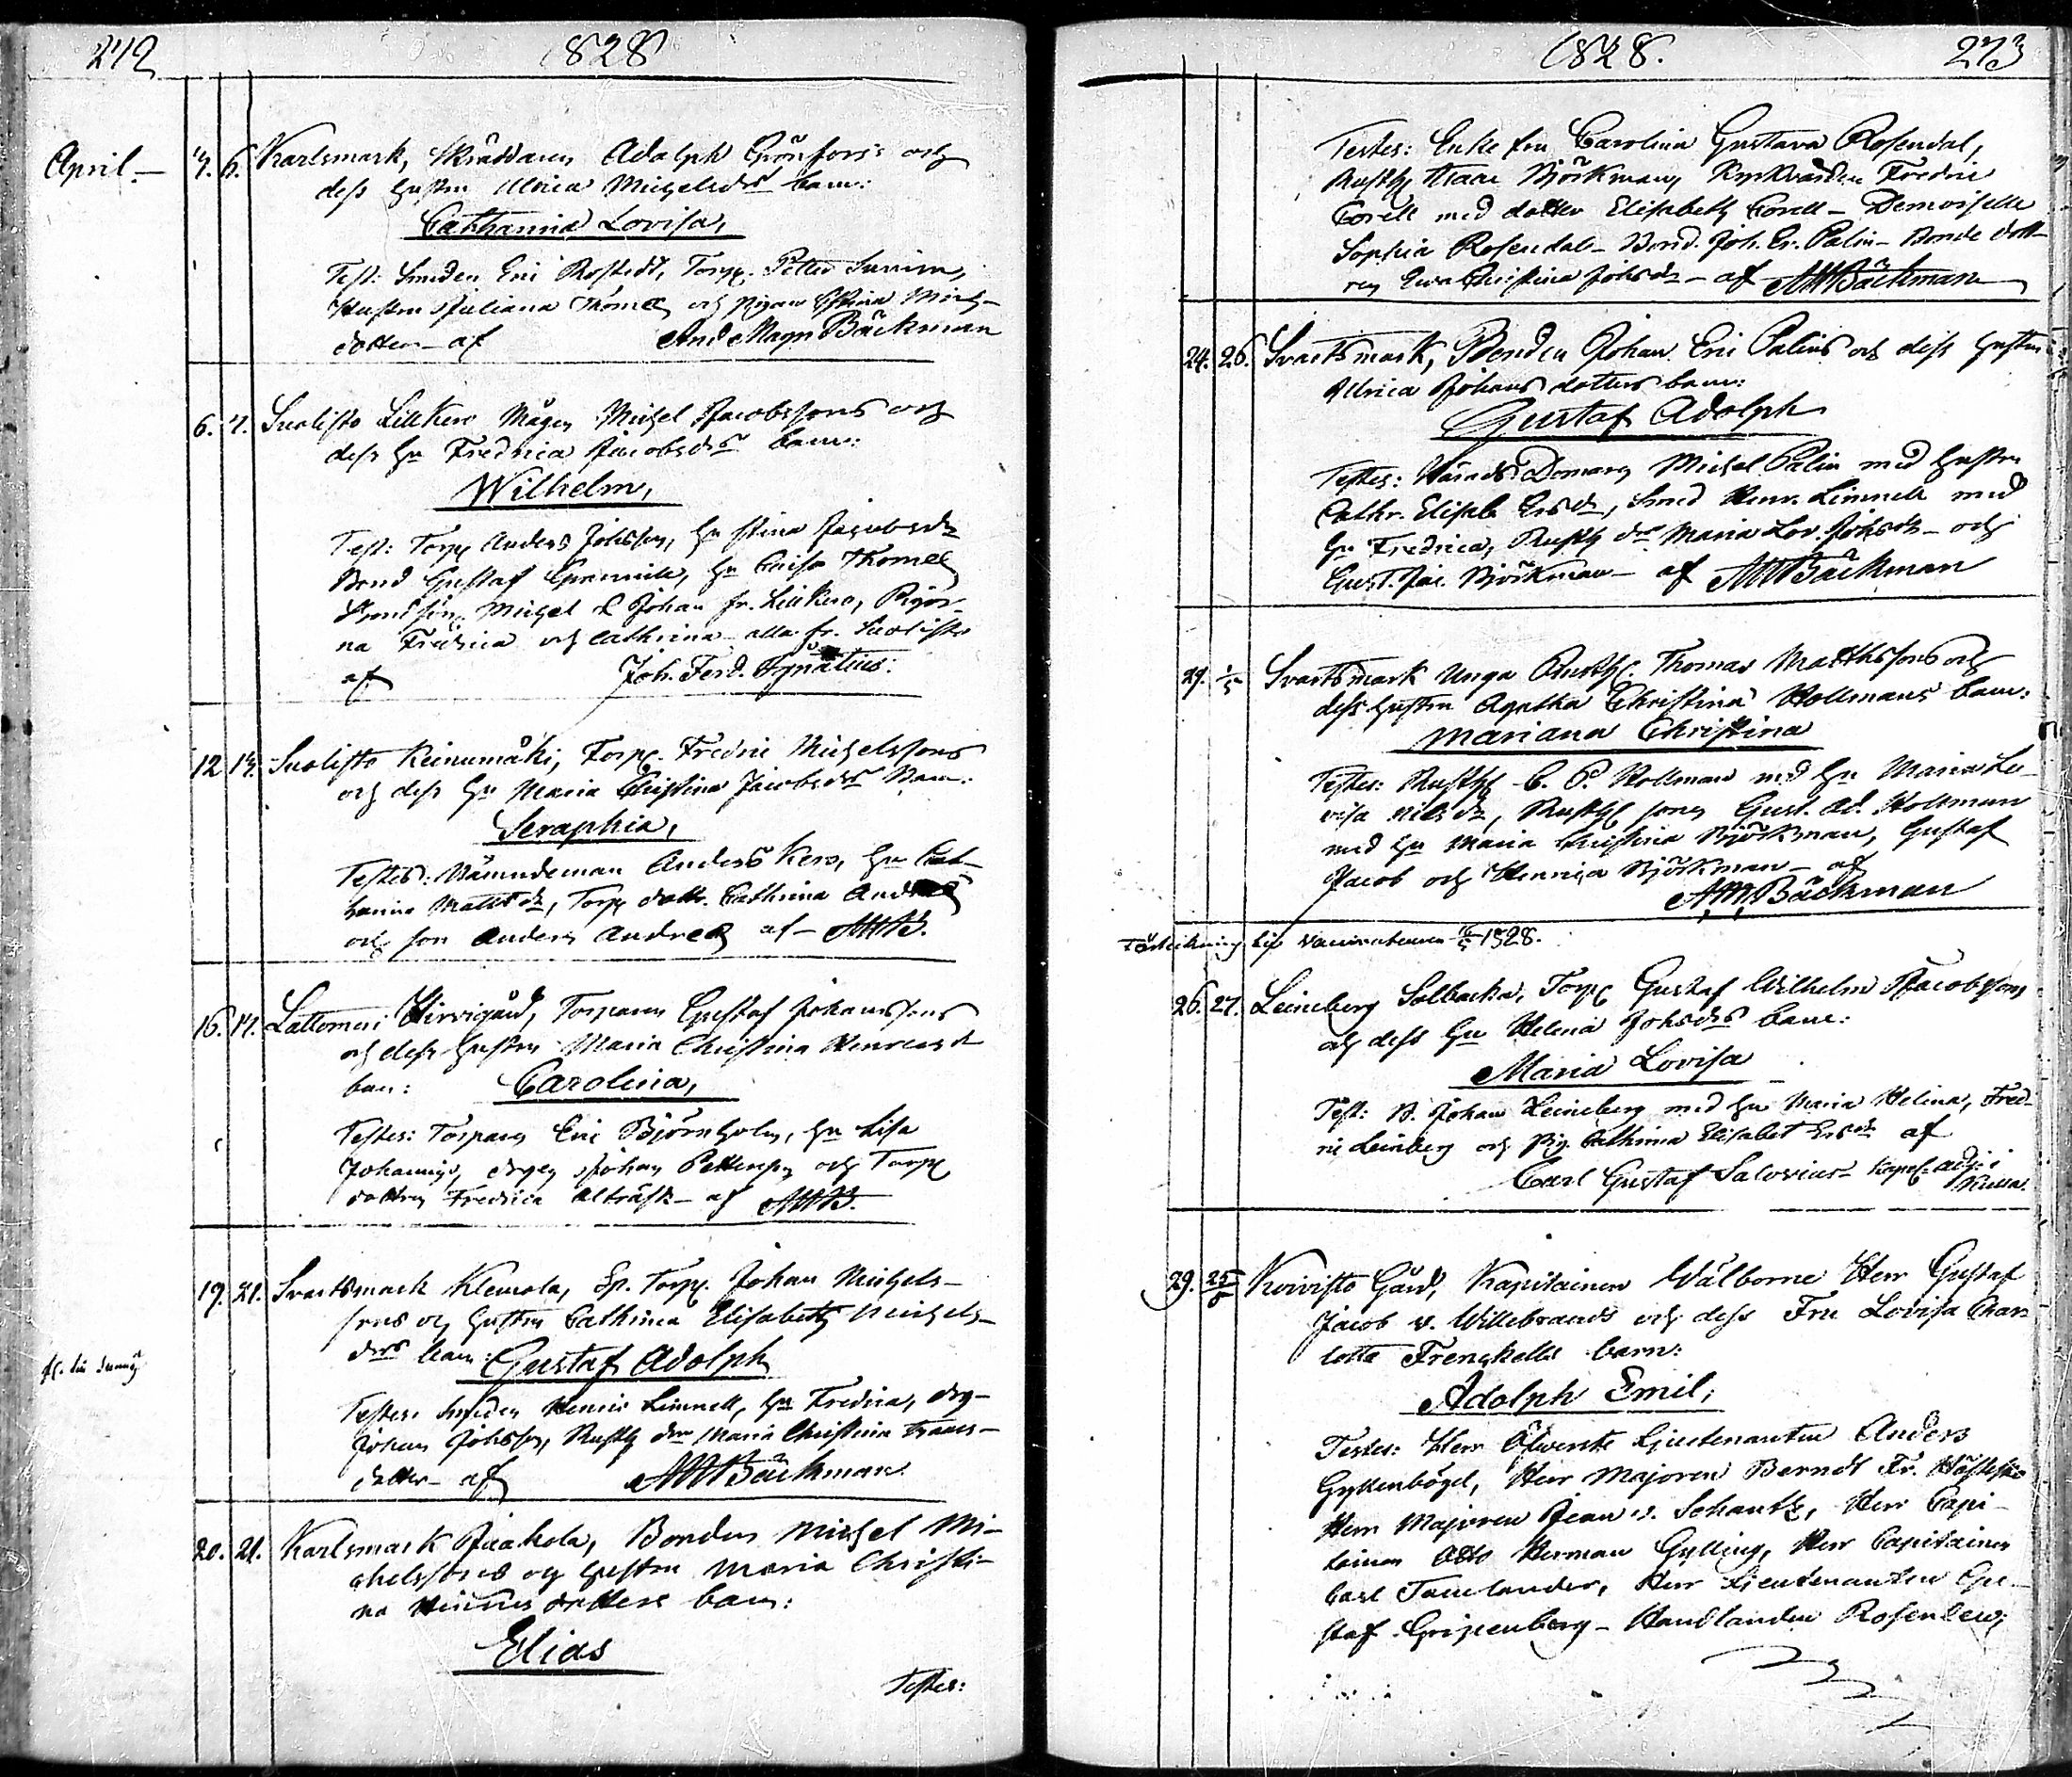 272
1828
April.
4. 6. Karlsmark, Skräddaren Adolph Grönfors's och
dess hustru Ulrica Michelsdrs barn:
Catharina Lovisa,
Test: Smeden Eric Rostedt, Torp. Petter
Hustru Juliana Thome och pigan Stina Mich-
dotter – af And Magn Bäckman
6. 7. Suolisto Lillkero Mågen Michel Jacobssons och
dess Hu Fredrica Jacobsdrs barn:
Wilhelm,
Test: Torp Anders Johsson, Hu Stina Jacobsdr
Bond Gustaf Hu Caisa Thome
Michel & Johan fr. Lillkero, Pigor-
na Fredrica och Cathrina alla fr. Suolisto
af Joh. Ferd. Ignatius.
12 14. Suolisto Keinumäki, Torp. Fredric Michelssons
och dess Hu Maria Christina Jacobsdrs Barn:
Seraphia,
Testes: Nämndeman Anders Kero, Hu Cat-
harina Mattsdr, Torp dottr. Cathrina
och son Anders Andre af – AMB.
16. 17. Lattomeri Hirvigård, Torparen Gustaf Johanssons
och dess hustru Maria Christina Henricsdr
barn: Carolina,
Testes: Torparen Eric Björnholm, Hu Lisa
drgen Johan Pettersson och Torp
dottren Fredrica Alträsk – af AMB.
19. 21. Svartsmark Klemola, Sp. Torp. Johan Michels-
sons och hustru Cathrina Elisabeth Michels-
drs barn: Gustaf Adolph
Testes: Smeden Henric Limnell, Hu Fredrica, drg-
Johan Johsson, Rusth dr Maria Christina
dotter – af AMBäckman
20. 21. Karlsmark Jaakola, Bonden Michel Mi-
chelssons och hustru Maria Christi-
na dotters barn:
Elias
Testes:
1828.
273
Testes: Enke fru Carolina Gustava Rosendal,
Rusth Isaac Björkman, Kyrkvärden Fredric
Corell med dotter Elisabeth Corell – Demoiselle
Sophia Rosendal – Bond. Joh. Er. Palin – Bonde dott-
ren Eva Christina Johsdr – af AMBäckman
24. 26. Svartsmark, Bonden Johan Eric Palins och dess hustru
Ulrica Johansdotters barn:
Gustaf Adolph
Testes: Härads Domaren Michel Palin med hustru
Cathr. Elisab Ersdr, Smed Henr. Limnell med
Hu Fredrica, Rusth dr Maria Lov. Johsdr – och
Gust. Jac. Björkman – af AMBäckman
29. 1/5 Svartsmark Unga Rusth. Thomas Matthssons och
dess hustru Agatha Christina Hollmans barn:
Mariana Christina
Testes: Rusth C. P. Hollman med Hu Maria Lo-
visa Nilsdr, Rusth sonen Gust. Ad. Hollman
med Hu Maria Christina Björkman, Gustaf
Jacob och Henrica Björkman – af
AMBäckman
1828.
26. 27. Leineberg Solbacka, Torp Gustaf Wilhelm Jacobssons
och dess Hu Helena Johsdrs barn:
Maria Lovisa
Test: B. Johan Leineberg med Hu Maria Helena, Fred-
ric Leinberg och Pig. Cathrina Elisabet Ersdr af
Carl Gustaf Salovius Kapel. adj: i
Kiula.
29. 25/5 Koivisto Gård, Kapitainen Wälborne Herr Gustaf
Jacob v. Willebrands och dess Fru Lovisa Char-
lotta Frenckells barn:
Adolph Emil;
Testes: Herr Öfverste Lieutenanten Anders
Gyllenbögel, Herr Majoren Berndt Fr. Hästesko
Herr Majoren Jean v. Schantz, Herr Capi-
tainen Otto Herman Gylling, Herr Capitainen
Carl Tauvlander, Herr Lieutenanten Gu-
staf Gripenberg – Handlanden Rosenlew;